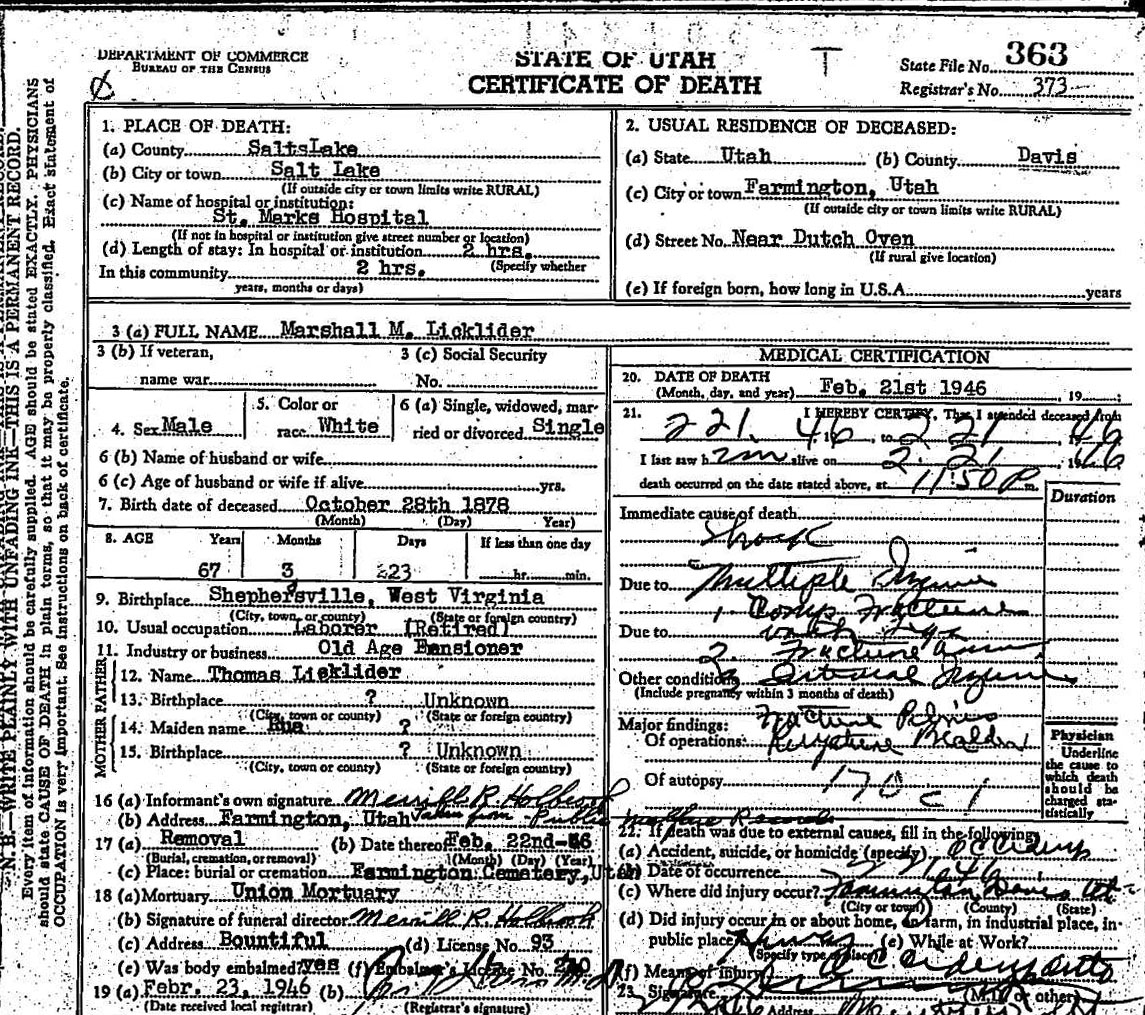 DEPARTMENT OF COMMERCE
BUREAU OF THE CENSUS
STATE OF UTAH
CERTIFICATE OF DEATH
T
State File No. 363
Registrar's No. 373
N. B.—WRITE PLAINLY WITH UNFADING INK—THIS IS A PERMANENT RECORD.
Every item of information should be carefully supplied. AGE should be stated EXACTLY. PHYSICIANS
should state CAUSE OF DEATH in plain terms, so that it may be properly classified. Exact statement of
OCCUPATION is very important. See instructions on back of certificate.
1. PLACE OF DEATH:
(a) County SaltsLake
(b) City or town Salt Lake
(If outside city or town limits write RURAL)
(c) Name of hospital or institution:
St. Marks Hospital
(If not in hospital or institution give street number or location)
(d) Length of stay: In hospital or institution 2 hrs.
(Specify whether
In this community 2 hrs.
years, months or days)
2. USUAL RESIDENCE OF DECEASED:
(a) State Utah (b) County Davis
(c) City or town Farmington, Utah
(If outside city or town limits write RURAL)
(d) Street No. Near Dutch Oven
(If rural give location)
(e) If foreign born, how long in U.S.A. years
3 (a) FULL NAME Marshall M. Licklider
3 (b) If veteran,
name war
3 (c) Social Security
No.
4. Sex Male
5. Color or
race White
6 (a) Single, widowed, mar-
ried or divorced Single
6 (b) Name of husband or wife
6 (c) Age of husband or wife if alive yrs.
7. Birth date of deceased October 28th 1878
(Month) (Day) Year)
8. AGE Years Months Days If less than one day
67 3 223 hr. min.
9. Birthplace Shephersville, West Virginia
(City, town, or county) (State or foreign country)
10. Usual occupation Laborer (Retired)
11. Industry or business Old Age Pensioner
FATHER
12. Name Thomas Licklider
13. Birthplace ? Unknown
(City, town or county) (State or foreign country)
MOTHER
14. Maiden name ?
15. Birthplace ? Unknown
(City, town or county) (State or foreign country)
16 (a) Informant's own signature Merrill R. Holbrook
(b) Address Farmington, Utah Taken from Public Welfare Records
17 (a) Removal (b) Date thereof Feb. 22nd-46
(Burial, cremation, or removal) (Month) (Day) (Year)
(c) Place: burial or cremation Farmington Cemetery, Utah
18 (a) Mortuary Union Mortuary
(b) Signature of funeral director Merrill R. Holbrook
(c) Address Bountiful (d) License No. 93
(e) Was body embalmed? yes (f) Embalmer's License No.
19 (a) Febr. 23, 1946 (b)
(Date received local registrar) (Registrar's signature)
MEDICAL CERTIFICATION
20. DATE OF DEATH
(Month, day, and year) Feb. 21st 1946 , 19
21. I HEREBY CERTIFY, That I attended deceased from
2 21. 46, to 2 21, 1946
I last saw him alive on 2. 21 1946
death occurred on the date stated above, at 11:50 P m.
Duration
Immediate cause of death
Shock
Due to Multiple Injuries
1. Comp Fracture
Due to
2. Fracture
Other conditions 3. Internal Injuries
(Include pregnancy within 3 months of death)
Major findings: Fracture Pelvis
Of operations: Rupture Bladder
Of autopsy 170 c 1
Physician
Underline
the cause to
which death
should be
charged sta-
tistically
22. If death was due to external causes, fill in the following:
(a) Accident, suicide, or homicide (specify) accident
(b) Date of occurrence
(c) Where did injury occur? Farmington Davis Ut
(City or town) (County) (State)
(d) Did injury occur in or about home, on farm, in industrial place, in
public place? (e) While at Work?
(Specify type of place)
(f) Means of injury accident auto
23. Signature (M.D. or other)
Address